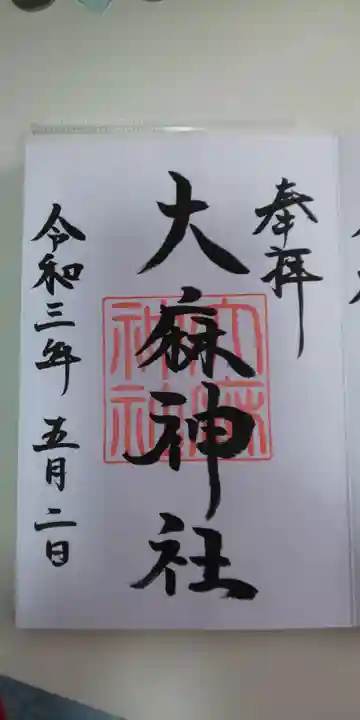 奉拝
大麻神社
大麻
神社
令和三年 五月二日